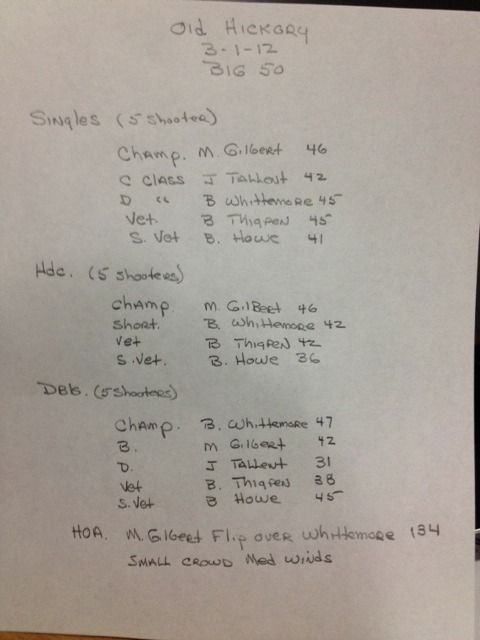 Old Hickory
3-1-12
BIG 50
Singles (5 Shooter)
Champ. M. Gilbert 46
C Class J Tallent 42
D " B Whittemore 45
Vet. B Thigpen 45
S. Vet B. Howe 41
Hdc. (5 Shooters)
Champ M. Gilbert 46
Short. B. Whittemore 42
Vet B Thigpen 42
S. Vet. B. Howe 36
Dbls. (5 Shooters)
Champ. B. Whittemore 47
B. M Gilbert 42
D. J Tallent 31
Vet B. Thigpen 38
S. Vet B Howe 45
HOA. M. Gilbert Flip over Whittemore 134
Small crowd Med winds